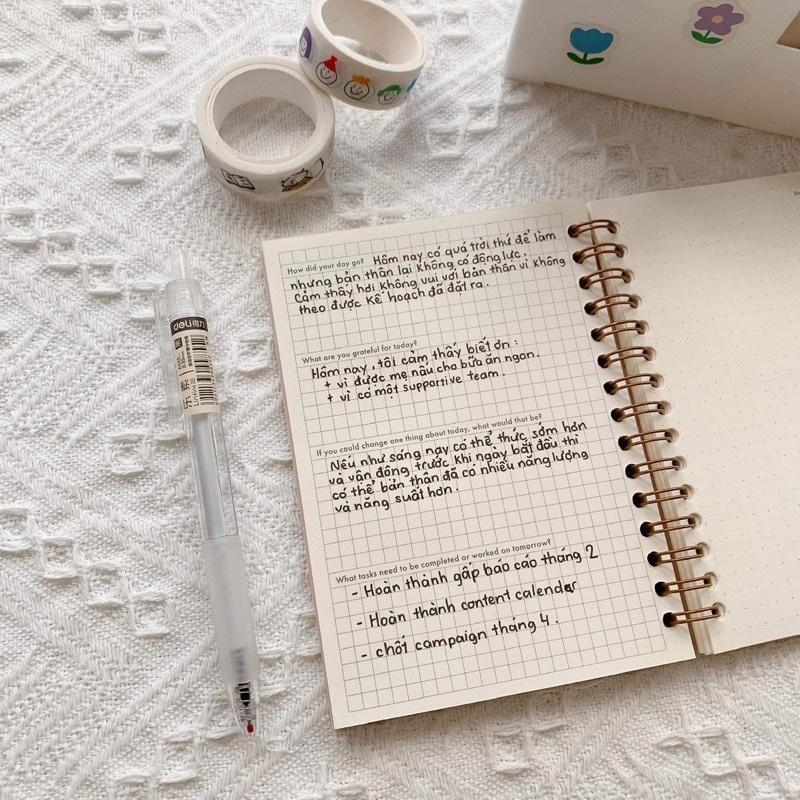 How did your day go? Hôm nay có quá trời thứ để làm
nhưng bản thân lại không có động lực.
Cảm thấy hơi không vui với bản thân vì không
theo được kế hoạch đã đặt ra.
What are you grateful for today?
Hôm nay, tôi cảm thấy biết ơn:
+ vì được mẹ nấu cho bữa ăn ngon.
+ vì có một supportive team.
If you could change one thing about today, what would that be?
Nếu như sáng nay có thể thức sớm hơn
và vận động trước khi ngày bắt đầu thì
có thể bản thân đã có nhiều năng lượng
và năng suất hơn.
What tasks need to be completed or worked on tomorrow?
- Hoàn thành gấp báo cáo tháng 2
- Hoàn thành content calender
- chốt campaign tháng 4.
deli得力